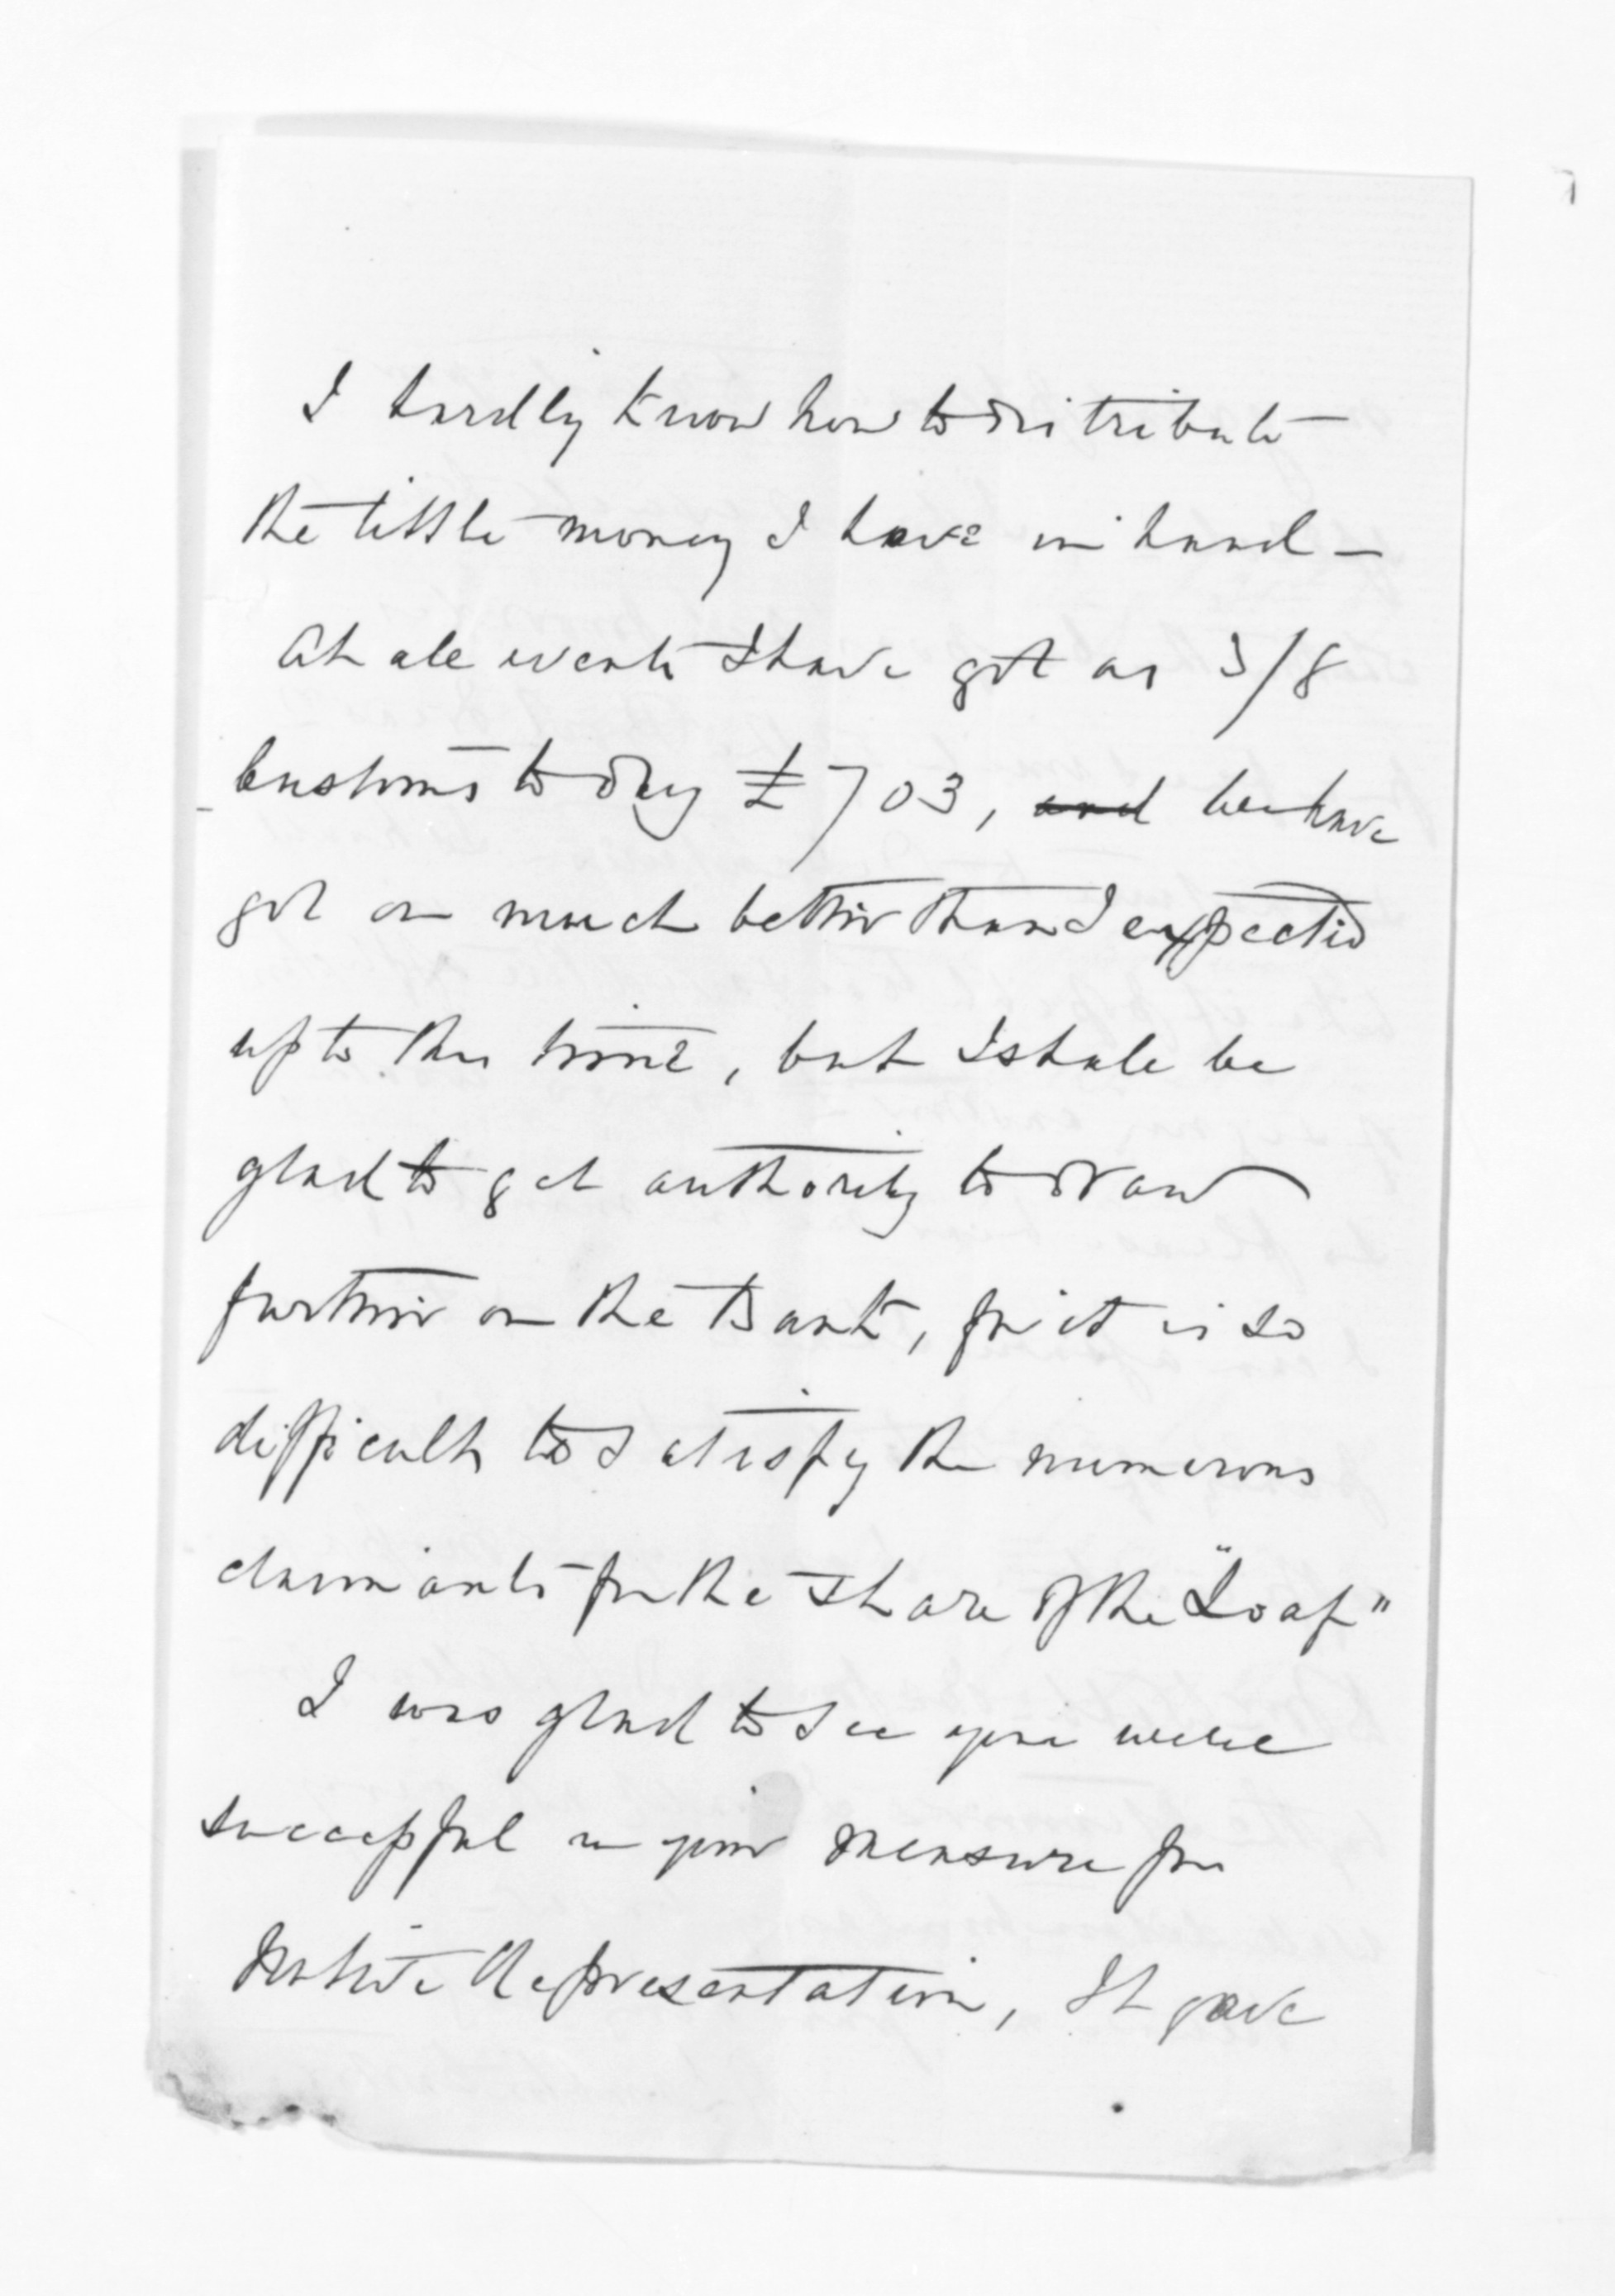 I hardly know how to distribute
the little money I have in hand —
At all events I have got as 3/8
customs to day £703, and we have
got on much better than I expected
up to this time, but I shall be
glad to get authority to draw
further on the Bank, for it is so
difficult to satisfy the numerous
claimants for the share of the "Loaf"
I was glad to see you were
successful in your measure for
Native Representation, It gave